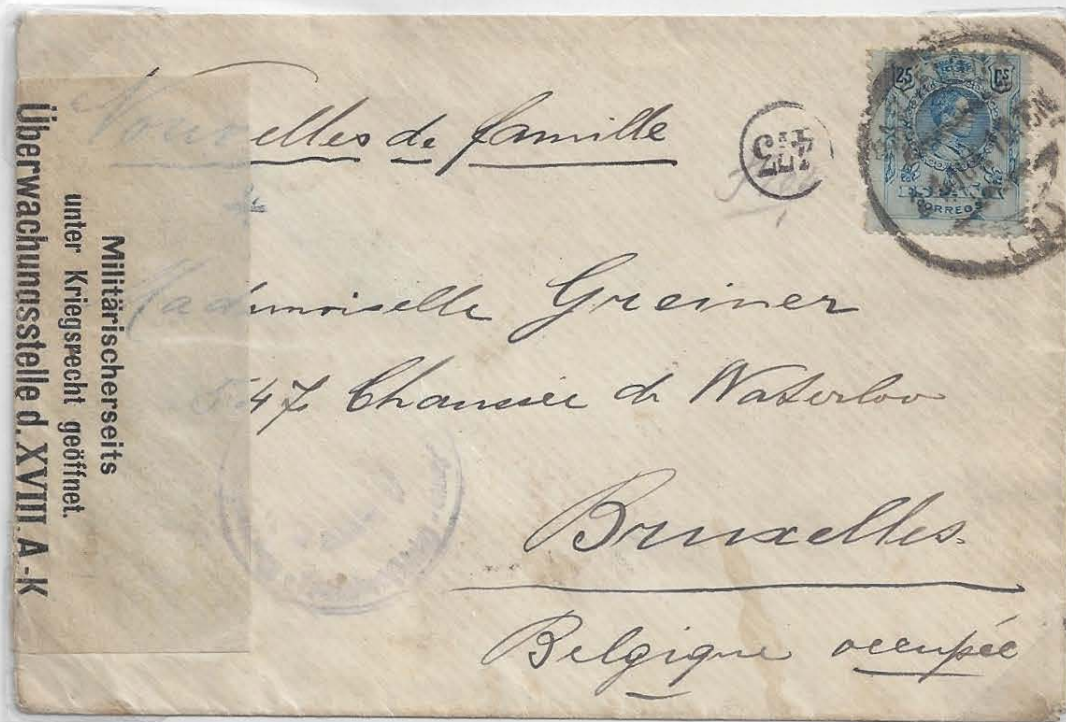 Nouvelles de famille
473
25 Cs
CORREOS
Mademoiselle Greiner
547 Chaussée de Waterloo
Bruxelles
Belgique occupée
Militärischerseits
unter Kriegsrecht geöffnet.
Überwachungsstelle d. XVIII. A-K